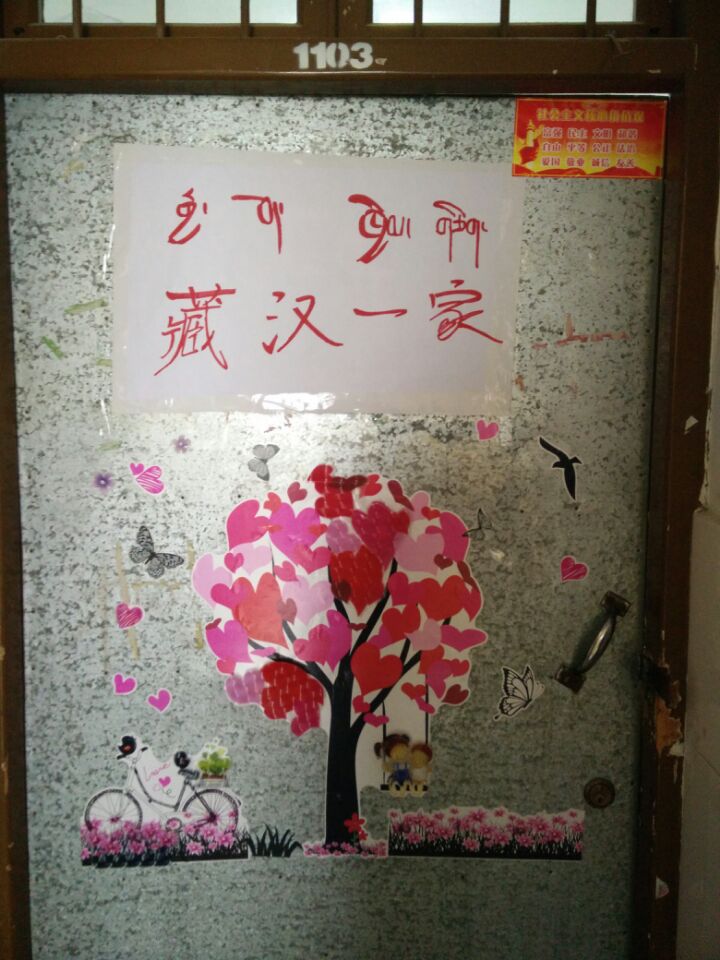 1103
社会主义核心价值观
富强 民主 文明 和谐
自由 平等 公正 法治
爱国 敬业 诚信 友善
藏汉一家
Love